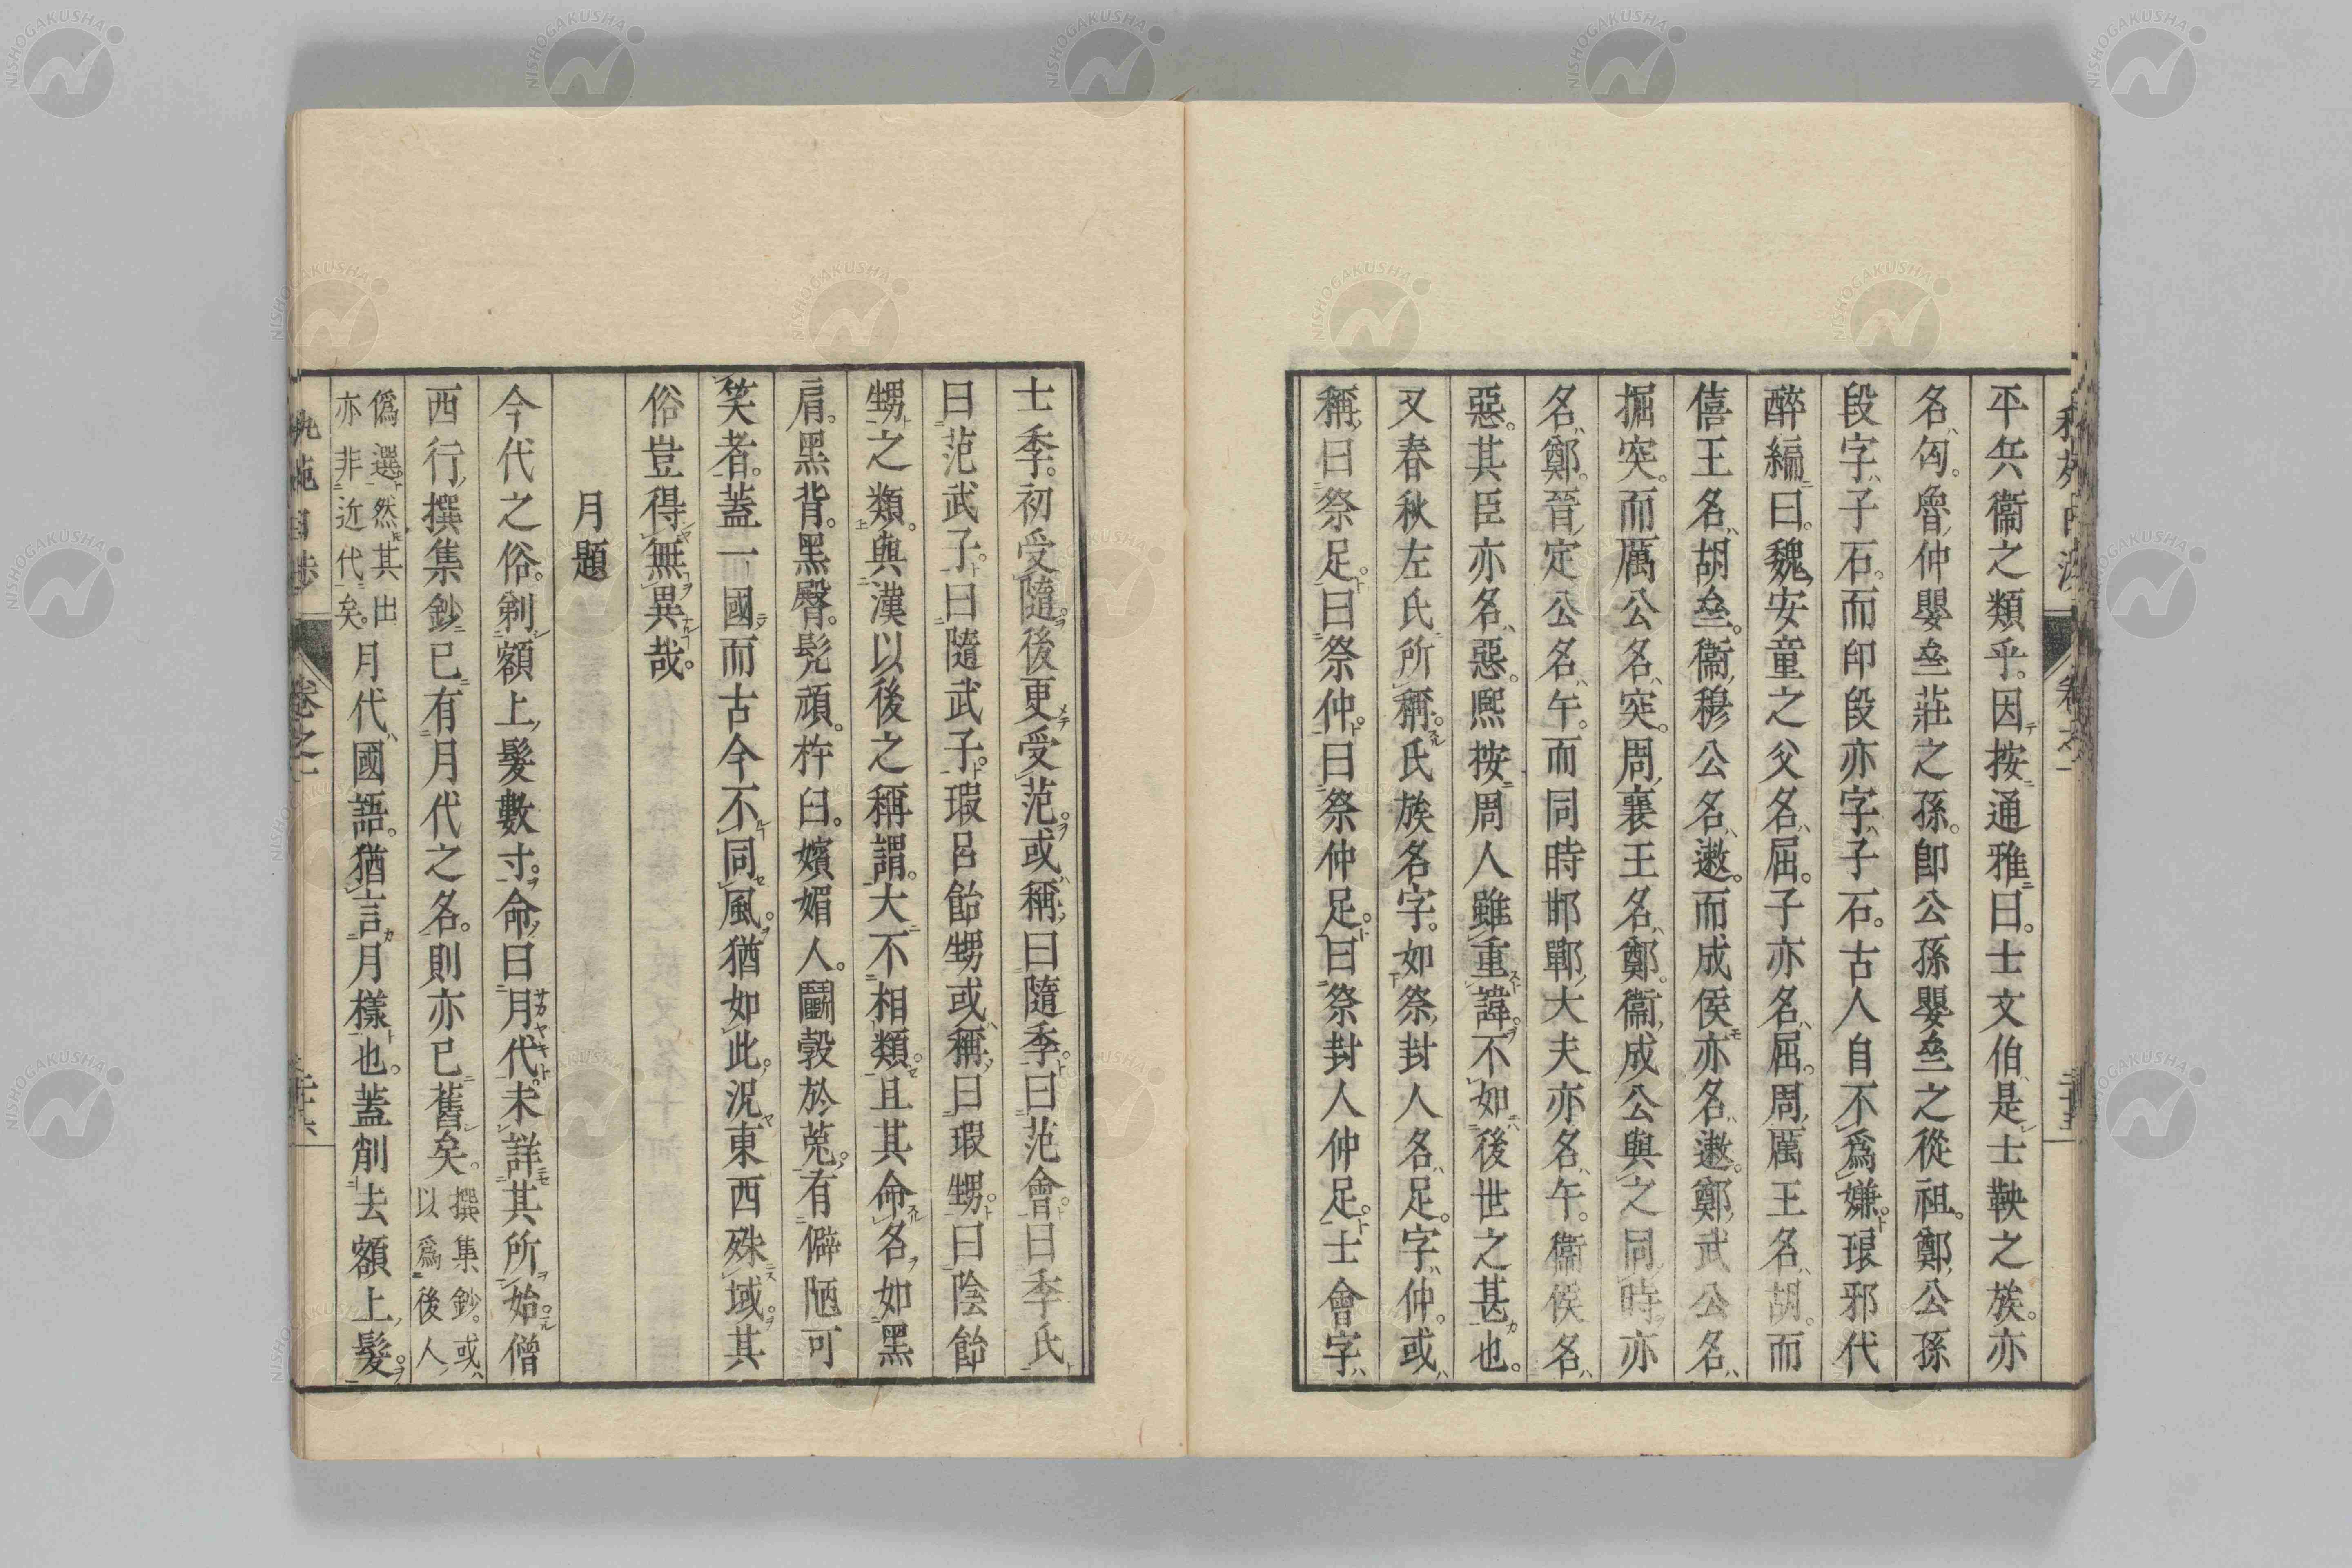 平兵衞之類乎。因按通雅曰。士文伯是士鞅之族。亦
名匃。魯仲嬰㚅莊之孫。卽公孫嬰㚅之從祖。鄭公孫
段字子石。而印段亦字子石。古人自不爲嫌。琅邪代
醉編曰。魏安童之父名屈。子亦名屈。周厲王名胡。而
僖王名胡㚅。衞穆公名遬。而成侯亦名遬。鄭武公名
掘突。而厲公名突。周襄王名鄭。衞成公與之同時。亦
名鄭。晉定公名午。而同時邯鄲大夫亦名午。衞侯名
惡。其臣亦名惡。熈按周人雖重諱。不如後世之甚也。
又春秋左氏所稱。氏族名字。如祭封人名足。字仲。或
稱曰祭足。曰祭仲。曰祭仲足。曰祭封人仲足。士會字
士季。初受隨後更受范。或稱曰隨季。曰范會。曰季氏
曰范武子。曰隨武子。瑕呂飴甥或稱曰瑕甥。曰陰飴
甥之類。與漢以後之稱謂。大不相類。且其命名如黑
肩。黑背。黑臀。髡頑。杵臼。嬪媚人。鬭穀於菟。有僻陋可
笑者。蓋一國而古今不同風。猶如此。況東西殊域。其
俗豈得無異哉。
月題
今代之俗。剃額上髮數寸。命曰月代。サカヤキ未詳其所始。僧
西行撰集鈔已有月代之名。則亦已舊矣。撰集鈔。或以爲後人
僞選。然其出亦非近代矣。月代國語。猶言月樣也。蓋剃去額上髮。
卷之一